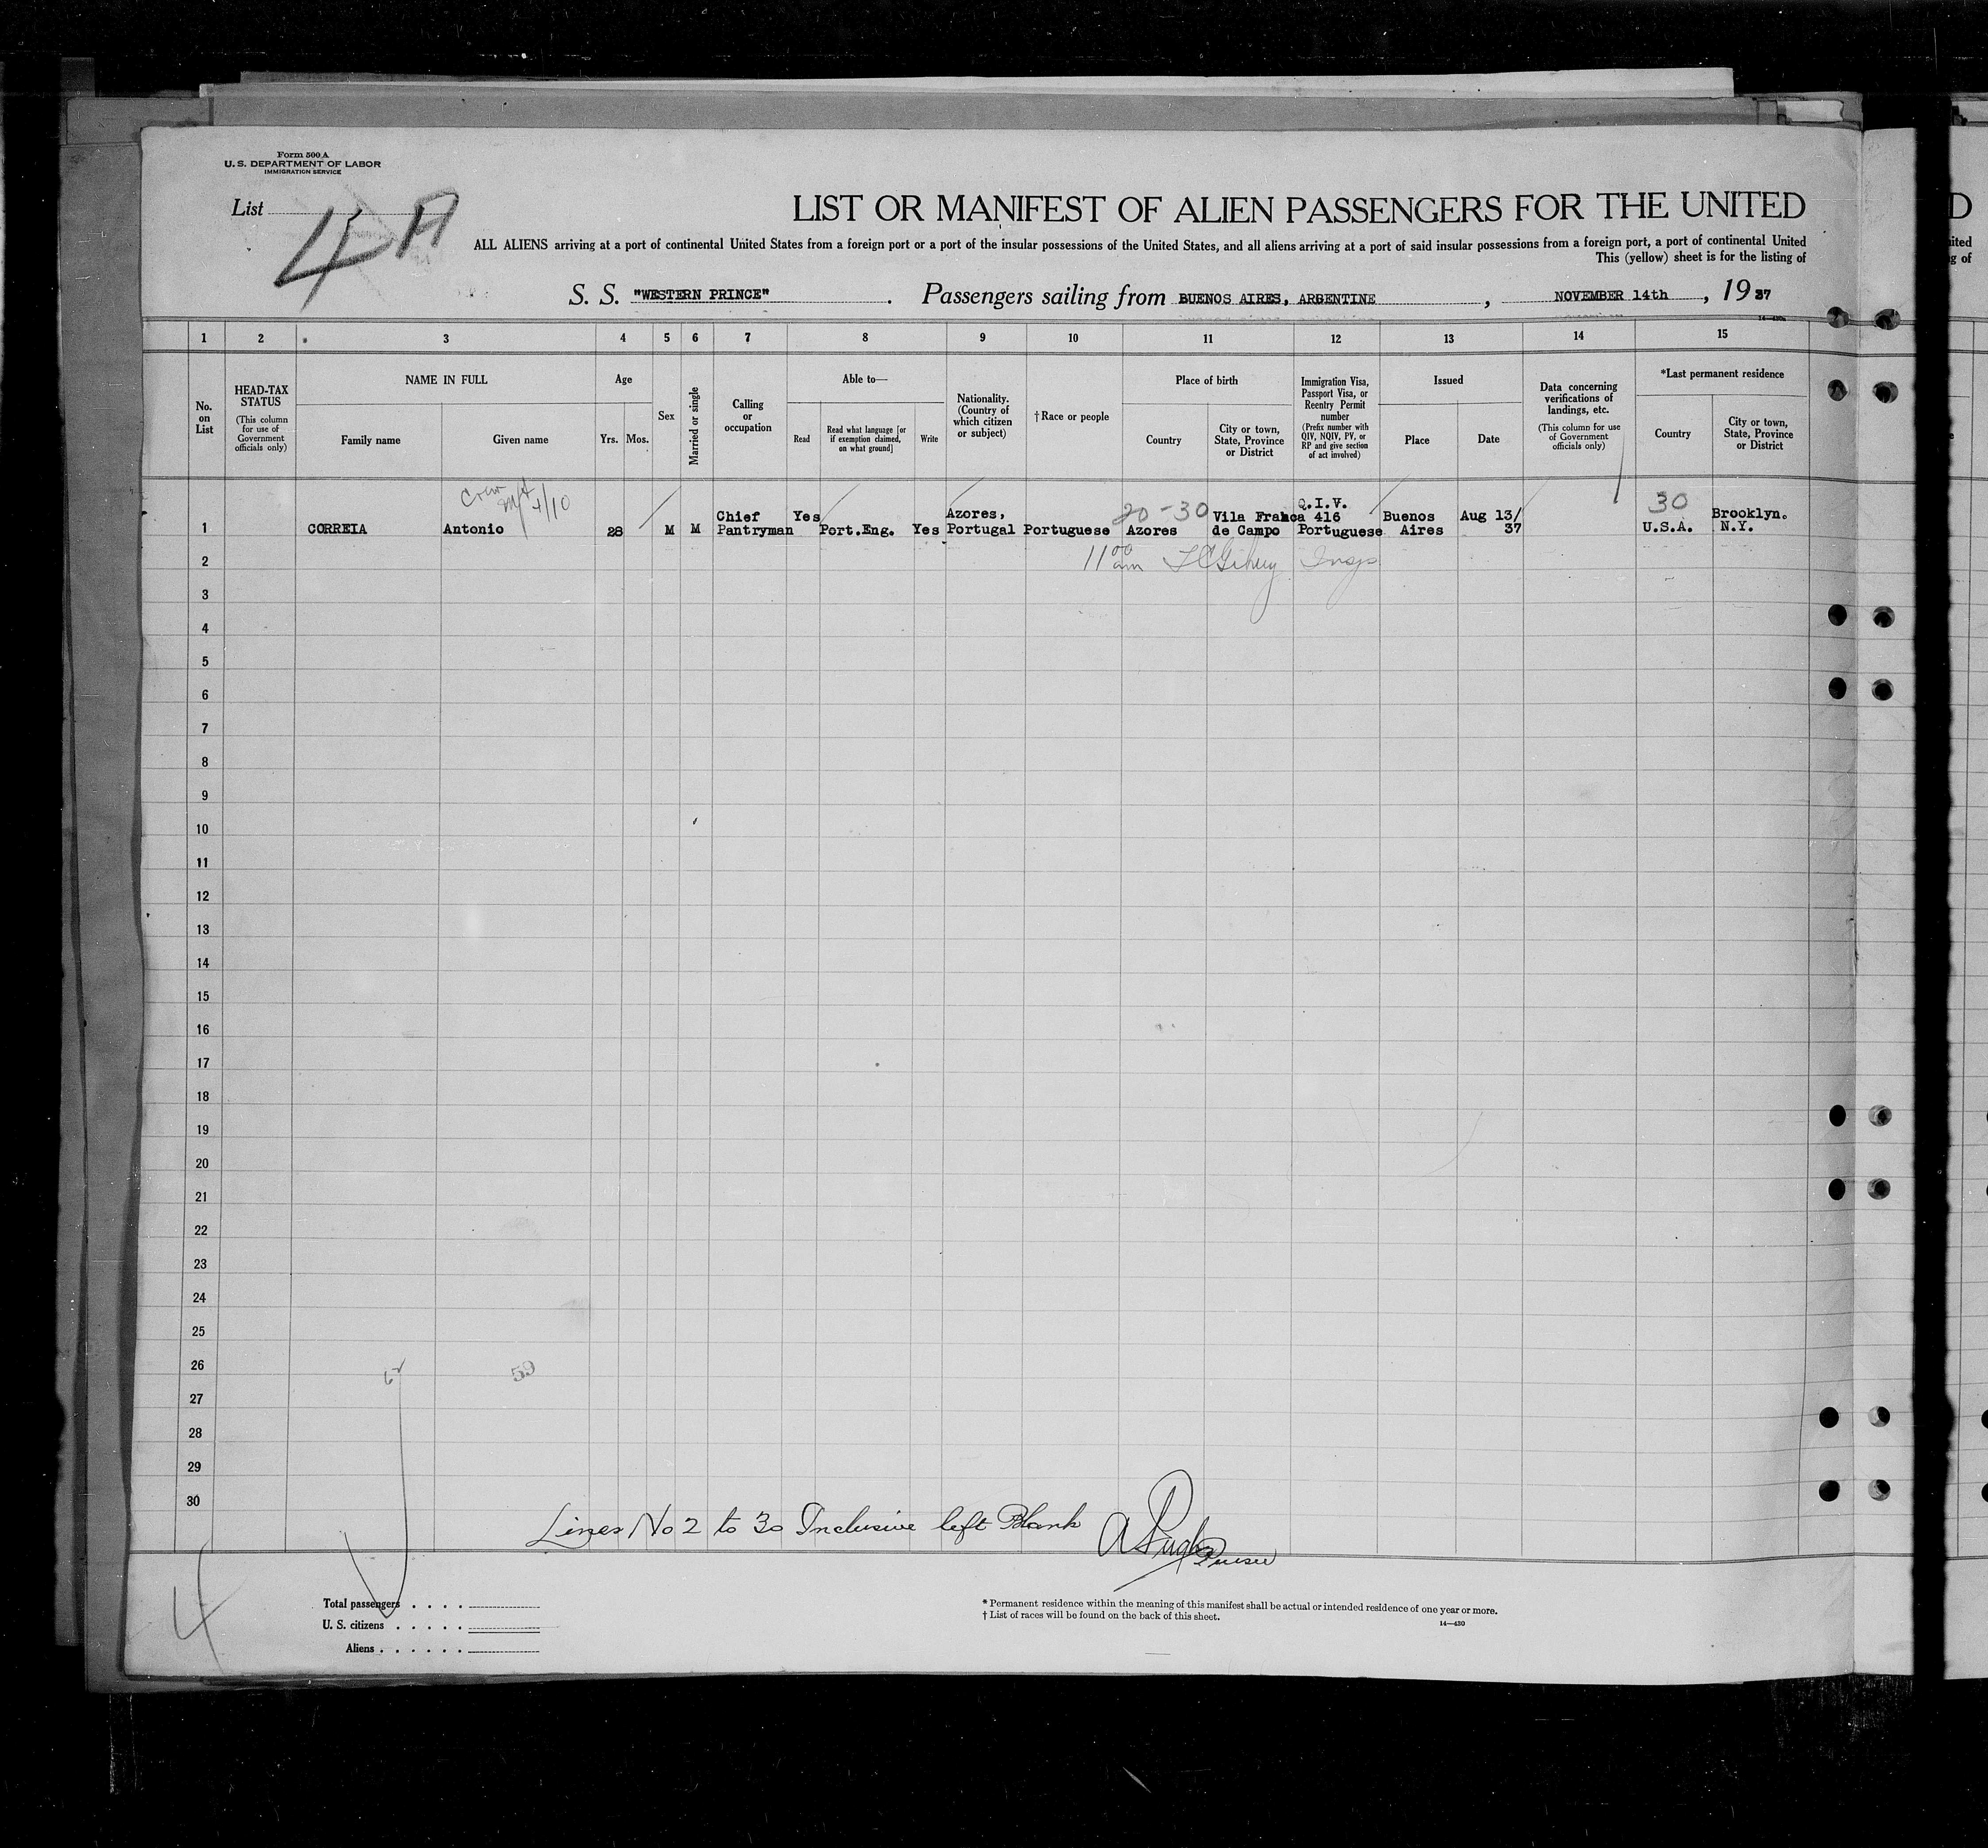 Form 500 A
U. S. DEPARTMENT OF LABOR
IMMIGRATION SERVICE
List 4 A
LIST OR MANIFEST OF ALIEN PASSENGERS FOR THE UNITED
ALL ALIENS arriving at a port of continental United States from a foreign port or a port of the insular possessions of the United States, and all aliens arriving at a port of said insular possessions from a foreign port, a port of continental United
This (yellow) sheet is for the listing of
S. S. "WESTERN PRINCE". Passengers sailing from BUENOS AIRES, ARGENTINE, NOVEMBER 14th, 1937
1 2 3 4 5 6 7 8 9 10 11 12 13 14 15
No. on List
HEAD-TAX STATUS
(This column for use of Government officials only)
NAME IN FULL
Family name
Given name
Age
Yrs. Mos.
Sex
Married or single
Calling or occupation
Able to—
Read
Read what language [or if exemption claimed, on what ground]
Write
Nationality. (Country of which citizen or subject)
† Race or people
Place of birth
Country
City or town, State, Province or District
Immigration Visa, Passport Visa, or Reentry Permit number
(Prefix number with QIV, NQIV, PV, or RP and give section of act involved)
Issued
Place
Date
Data concerning verifications of landings, etc.
(This column for use of Government officials only)
*Last permanent residence
Country
City or town, State, Province or District
Crew 4/10
20-30
30
1 CORREIA Antonio 28 M M Chief Pantryman Yes Port.Eng. Yes Azores, Portugal Portuguese Azores Vila Franca de Campo Q.I.V. 416 Portuguese Buenos Aires Aug 13/37 U.S.A. Brooklyn. N.Y.
2 11 00 am Insp
3
4
5
6
7
8
9
10
11
12
13
14
15
16
17
18
19
20
21
22
23
24
25
26
59
27
28
29
30
Lines No 2 to 30 Inclusive left Blank A Pugh Purser
4
Total passengers
U. S. citizens
Aliens
* Permanent residence within the meaning of this manifest shall be actual or intended residence of one year or more.
† List of races will be found on the back of this sheet.
14—430